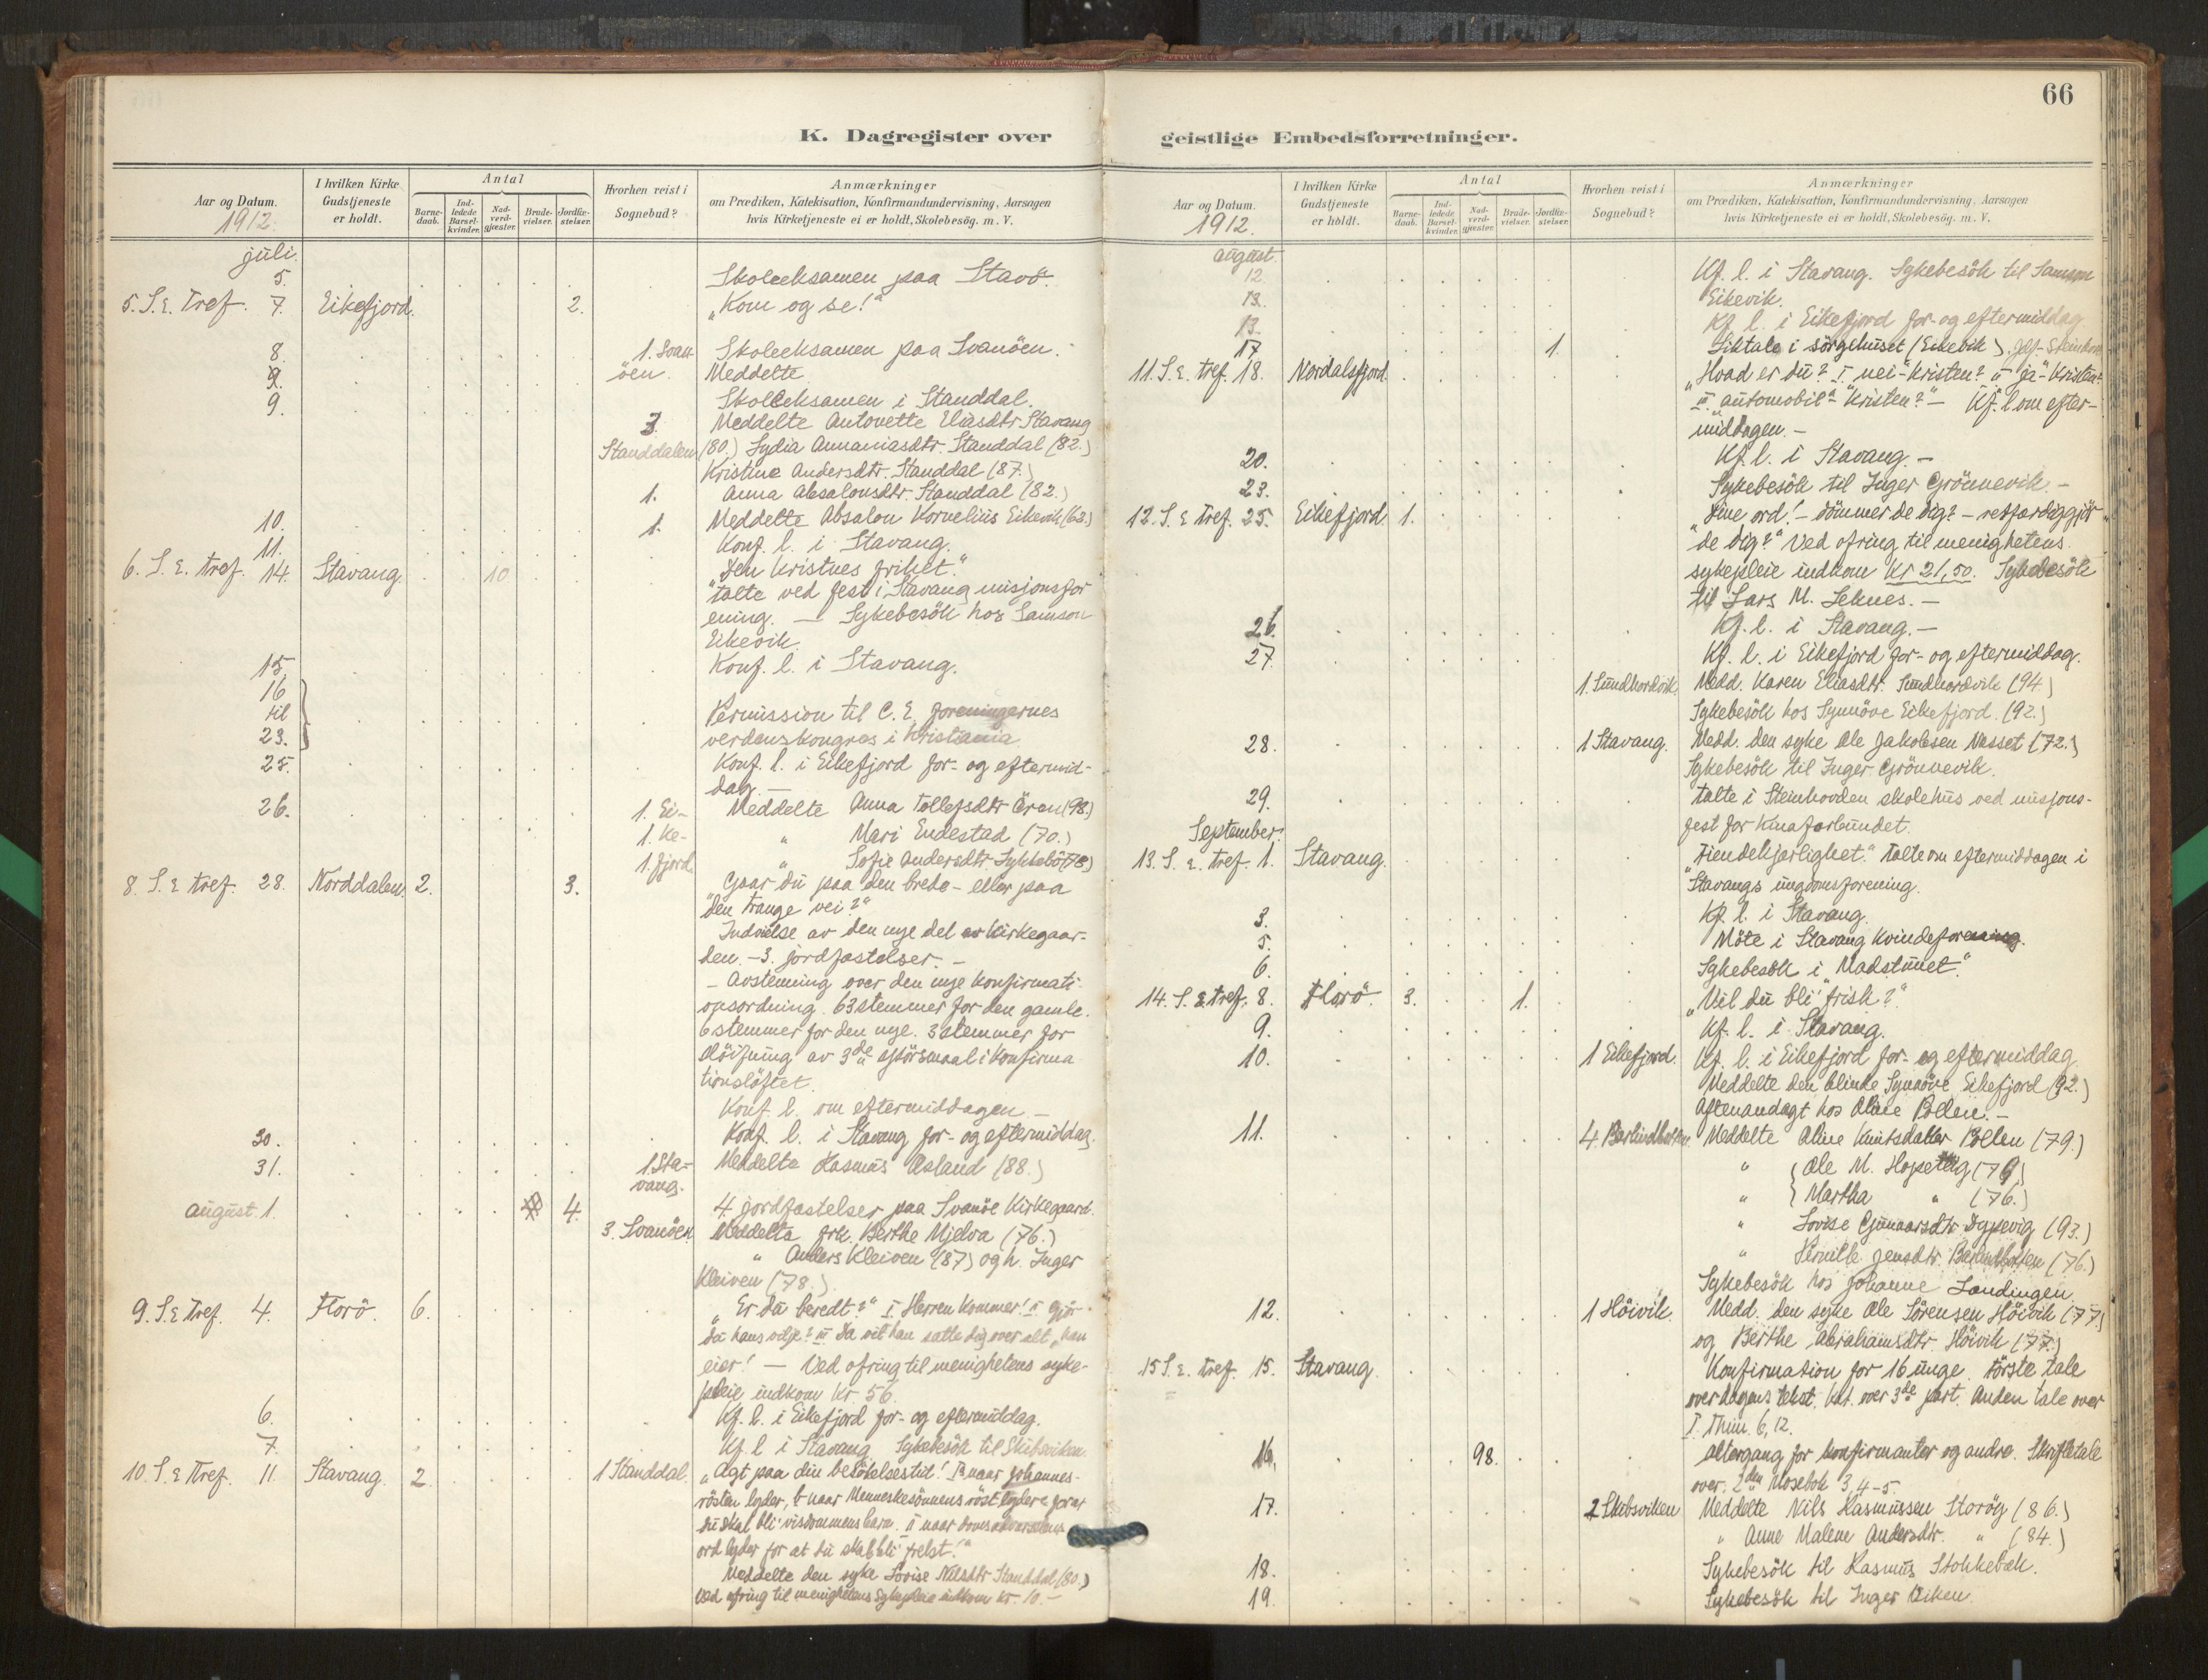 66
K. Dagregister over
geistlige Embedsforretninger.
Aar og Datum.
1912.
I hvilken Kirke Gudstjeneste er holdt.
Antal
Barnedaab.
Indledede Barselkvinder.
Nadverdgjæster.
Brudevielser.
Jordfæstelser.
Hvorhen reist i Sognebud?
Anmærkninger
om Prædiken, Katekisation, Konfirmandundervisning, Aarsagen
hvis Kirketjeneste ei er holdt, Skolebesög. m. V.
juli.
5. Skoleeksamen paa Stavö.
5. S. E. Tref. 7. Eikefjord. 2. "Kom og se!"
8. 1. Svan- Skoleeksamen paa Svanöen.
9. öen. Meddelte
9. Skoleeksamen i Standdal.
3 Meddelte Antonette Eliasdtr Stavang
Standdalen (80.) Lydia Annaniasdtr. Standdal (82.)
Kristine Andersdtr. Standdal (87.)
1. Anna Absalonsdtr. Standdal (82.)
10. 1. Meddelte Absalon Kornelius Eikevik (63.)
11. Konf. l. i Stavang.
6. S. E. tref. 14. Stavang. 10 "Den kristnes frihet."
talte ved fest i Stavang misjonsfor
ening. — Sykebesök hos Samson
Eikevik.
15. Konf. l. i Stavang.
16
til Permission til C. E. foreningernes
23. verdenskongres i Kristiania
25. Konf. l. i Eikefjord for- og eftermid-
dag. —
26. 1. Ei- Meddelte Anna Tollefsdtr (98.)
1. ke- " Mari Endestad (70.)
1. fjord. " Sofie Andersdtr (78)
8. S. E tref. 28. Norddalen. 2. 3. "Gaar du paa den brede - eller paa
den trange vei?"
Indvielse av den nye del av kirkegaar-
den. - 3. jordfæstelser. -
- Avstemning over den nye konfirmati-
onsordning. 63 stemmer for den gamle.
6 stemmer for den nye. 3 stemmer for
slöifning av 3de spörsmaal i konfirma
tionslöftet.
Konf. l. om eftermiddagen —
30. Konf. l. i Stavang for- og eftermiddag.
31. 1 Sta- Meddelte Rasmus Osland (88.)
vang.
august. 1. 4. 4 jordfæstelser paa Svanöe Kirkegaard.
3. Svanöen Meddelte frk. Berthe Mjelva (76.)
" Anders Kleiven (87) og h. Inger
Kleiven (78.)
9. S. E tref. 4. Florö. 6. "Er du beredt?" I Herren kommer! II gjör
du hans vilje? III Da vil han sætte dig over alt, han
eier! — Ved ofring til menighetens syke-
pleie indkom Kr 56.
6. Kf. l. i Eikefjord for- og eftermiddag.
7. Kf. l. i Stavang. Sykebesök til Skibsviken.
10. S. E Tref. 11. Stavang. 2 1 Standdal. "Agt paa din besökelsestid! naar Johannes-
rösten lyder, naar Menneskesönnens röst lyder for at
du skal bli visdommens barn. II naar
ord lyder for at du skal bli frelst!"
Meddelte den syke Lovise Nilsdtr Standdal (80.)
Ved ofring til menighetens sykepleie indkom kr. 10.-
Aar og Datum.
1912.
I hvilken Kirke Gudstjeneste er holdt.
Antal
Barnedaab.
Indledede Barselkvinder.
Nadverdgjæster.
Brudevielser.
Jordfæstelser.
Hvorhen reist i Sognebud?
Anmærkninger
om Prædiken, Katekisation, Konfirmandundervisning, Aarsagen
hvis Kirketjeneste ei er holdt, Skolebesög. m. V.
august.
12. Kf. l. i Stavang. Sykebesök til Samson
13. Eikevik.
13. Kf. l. i Eikefjord for- og eftermiddag
17 1. Liktale i sörgehuset (Eikevik)
11. S. E. tref. 18. Nordalsfjord. "Hvad er du? I nei-"kristen? II ja-"Kristen?
III automobil-"kristen?" - Kf. l. om efter-
middagen. -
20. Kf. l. i Stavang. -
23. Sykebesök til Inger Grönnevik -
12. S. E tref. 25. Eikefjord. 1. "Dine ord! - dömmer de dig? - retfærdiggjör
de dig?" Ved ofring til menighetens
sykepleie indkom Kr 21,50. Sykebesök
til Lars M. Seknes. -
26. Kf. l. i Stavang. -
27. Kf. l. i Eikefjord for- og eftermiddag.
1. Sundhordvik. Medd. Karen Eliasdtr. Sundhordvik (94)
Sykebesök hos Synnöve Eikefjord. (92.)
28. 1 Stavang. Medd. den syke Ole Jakobsen Nesset (72.)
Sykebesök til Inger Grönnevik.
29. talte i Steinhovden skolehus ved misjons-
fest for Kinaforbundet.
September.
13. S. E. tref. 1. Stavang. "Fiendekjærlighet." Talte om eftermiddagen i
Stavangs ungdomsforening.
3. Kf. l. i Stavang.
5. Möte i Stavang kvindeforening.
6. Sykebesök i "Madstunet".
14. S. E tref. 8. Florö. 3. 1. "Vil du bli frisk?"
9. Kf. l. i Stavang.
10. 1 Eikefjord. Kf. l. i Eikefjord for- og eftermiddag
Meddelte den blinde Synnöve Eikefjord (92.)
Aftenandagt hos Oline Pollen. -
11. 4 Meddelte Oline Knutsdatter Pollen (79.)
" Ole M. Hope
" Martha " (76.)
" Lovise Gunnarsdtr. (93.)
" Pernille Jensdtr. (76.)
Sykebesök hos Johanne Landingen
12. 1 Höivik. Medd. den syke Ole Sörensen Höivik (77.)
og Berthe Abrahamsdtr. Höivik (77.)
15 S. E. tref. 15. Stavang. Konfirmation for 16 unge. Förste tale
over dagens tekst. Kat. over 3de part. Anden tale over
I. Thim. 6, 12.
16. 98. altergang for konfirmanter og andre. Skriftetale
over. 2den Mosebok 3, 4-5.
17. 2 Skibsviken Meddelte Nils Rasmussen (86.)
" Anne Malene Andersdtr. " (84.)
18. Sykebesök til Rasmus Stokkebæk.
19. Sykebesök til Inger Viken.